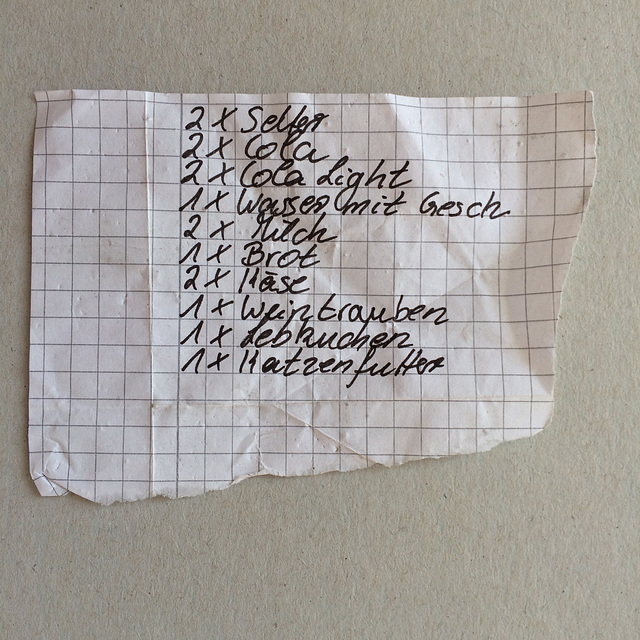 2 x Selter
2 x Cola
2 x Cola Light
1 x Wasser mit Gesch
2 x Milch
1 x Brot
2 x Käse
1 x Weintrauben
1 x Lebkuchen
1 x Katzenfutter